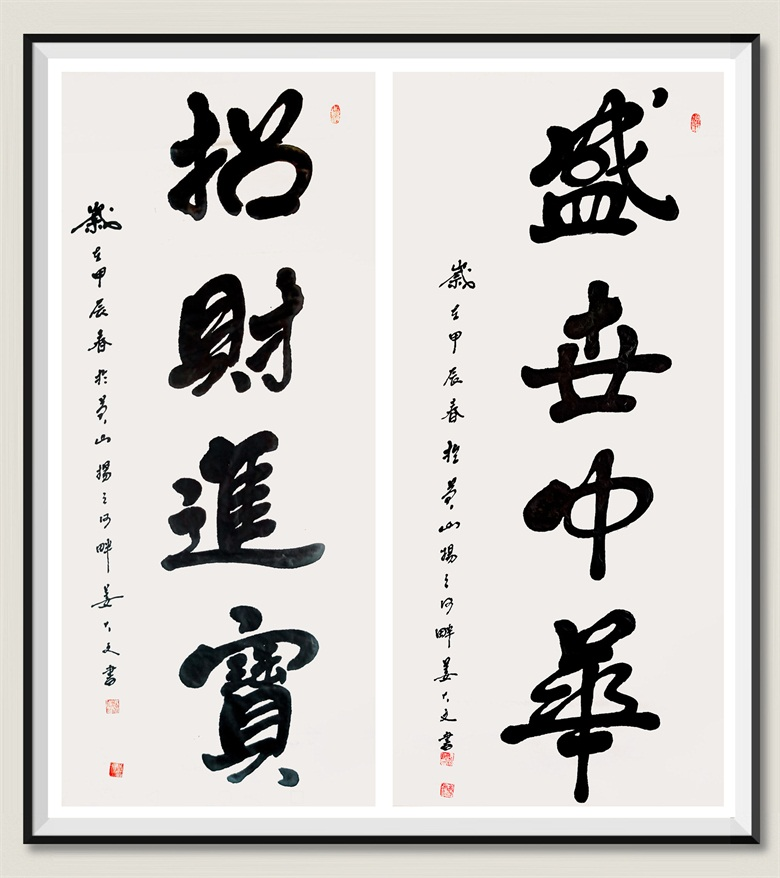 盛世中華
歲在甲辰春於黃山揚之河畔姜大文書
招財進寶
歲在甲辰春於黃山揚之河畔姜大文書